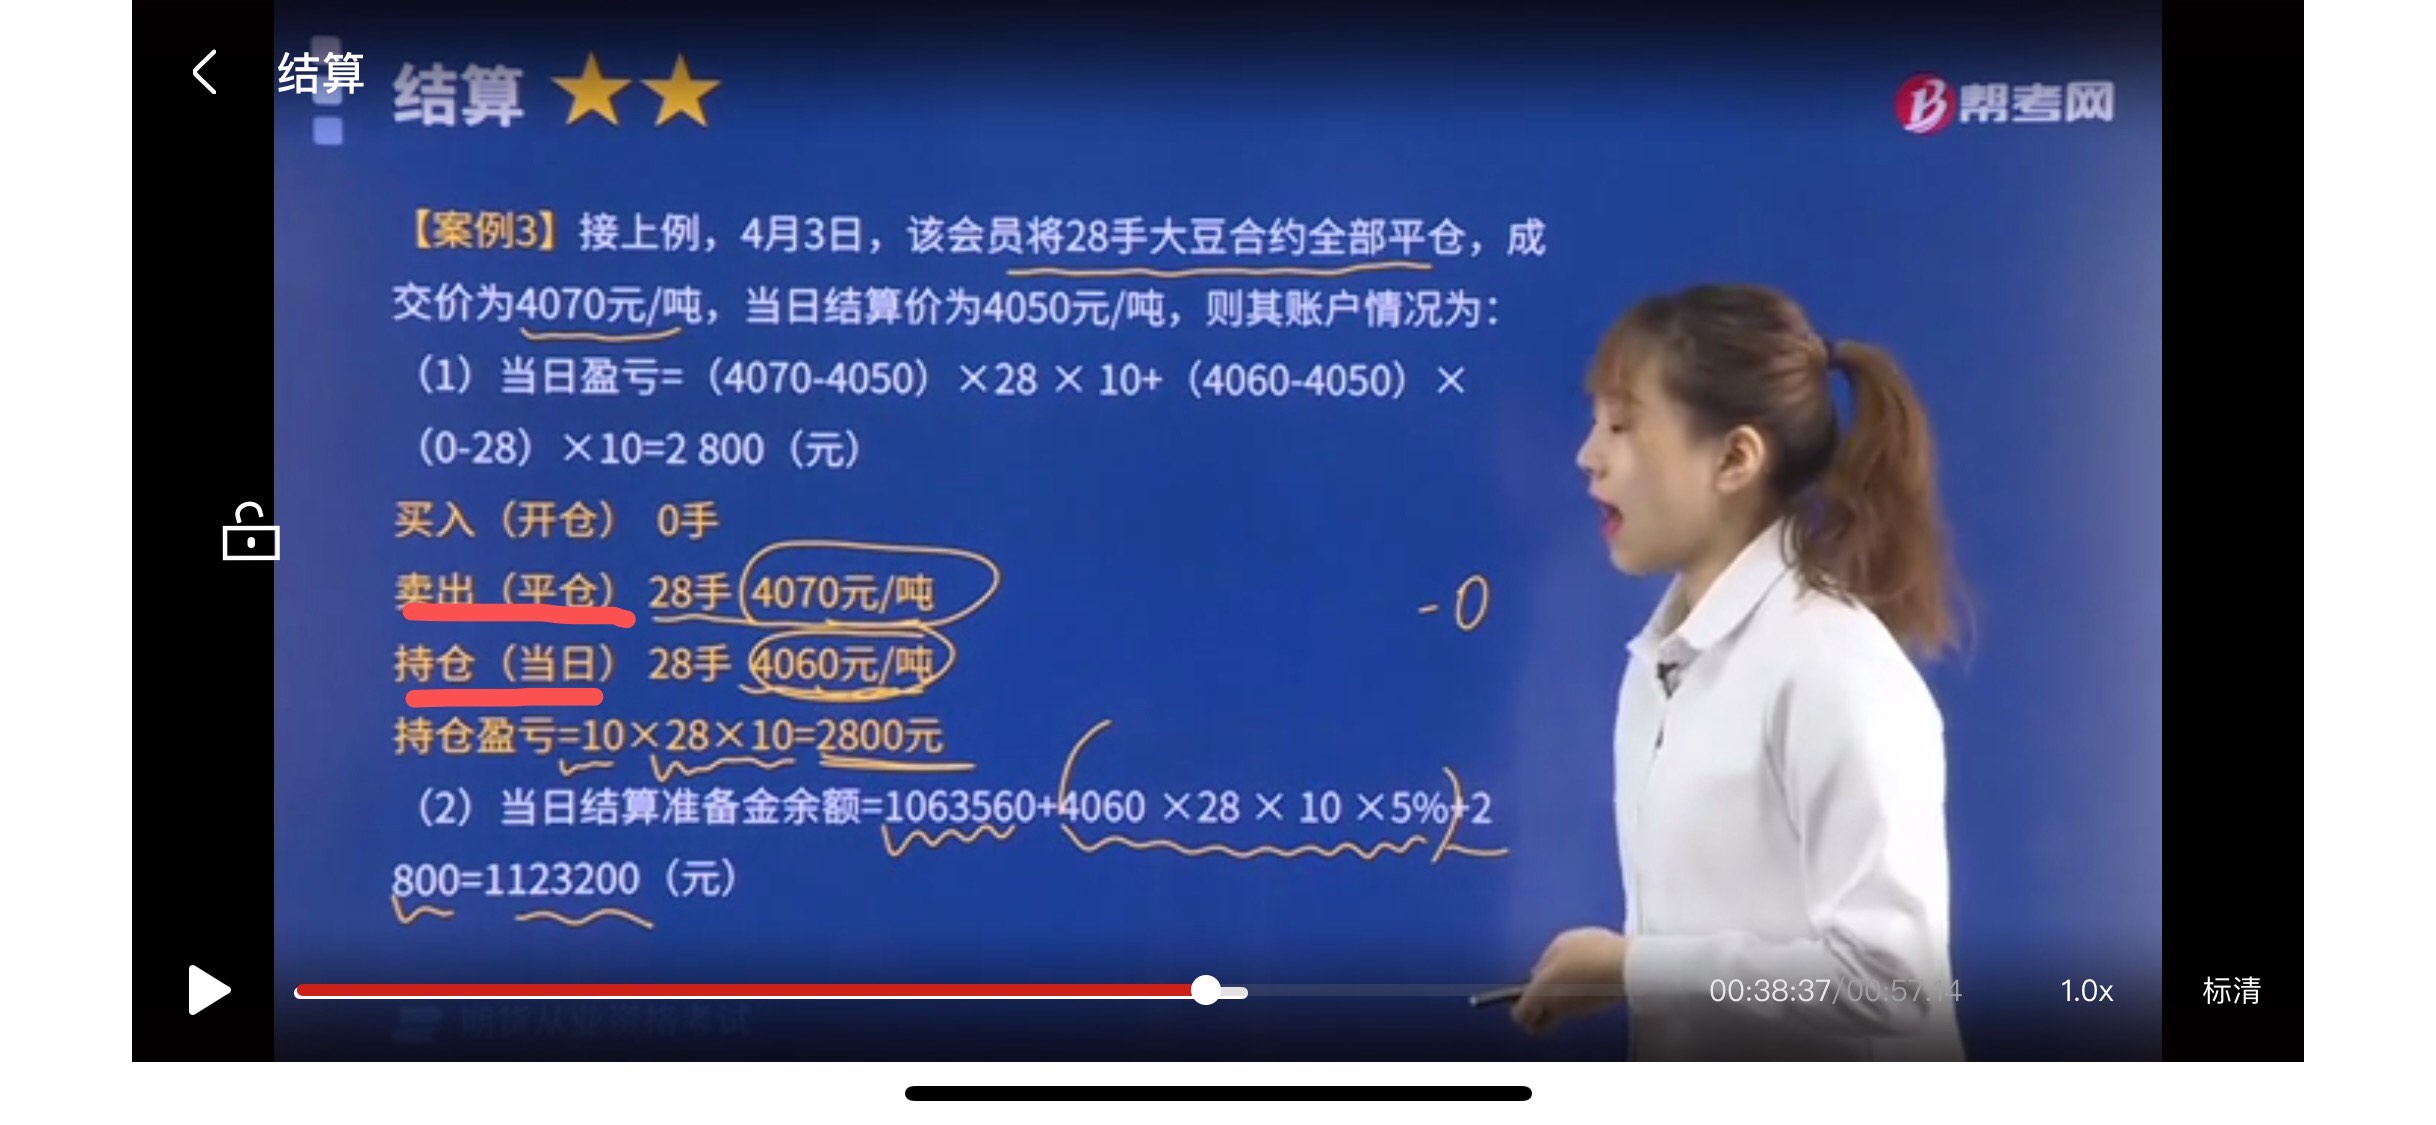 结算
结算
帮考网
【案例3】接上例，4月3日，该会员将28手大豆合约全部平仓，成
交价为4070元/吨，当日结算价为4050元/吨，则其账户情况为：
（1）当日盈亏=（4070-4050）×28 × 10+（4060-4050）×
（0-28）×10=2 800（元）
买入（开仓） 0手
卖出（平仓） 28手 4070元/吨
-0
持仓（当日） 28手 4060元/吨
持仓盈亏=10×28×10=2800元
（2）当日结算准备金余额=1063560+4060 ×28 × 10 ×5%+2
800=1123200（元）
00:38:37/00:57:14
1.0x
标清